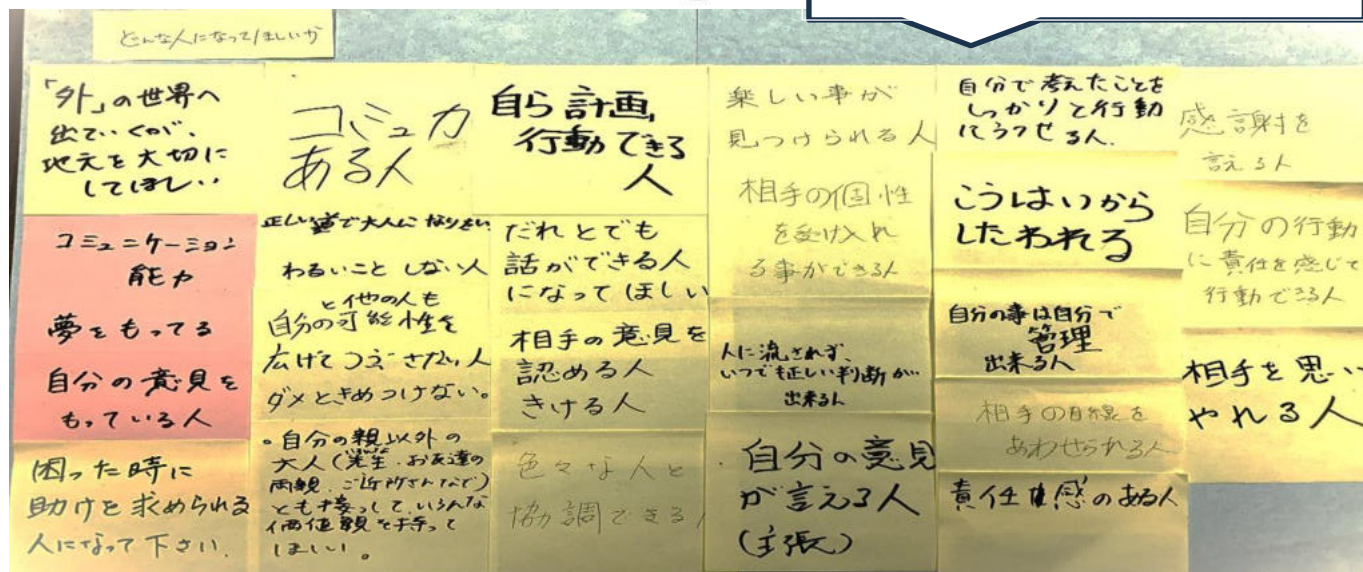 どんな人になってほしいか
「外」の世界へ
出ていくが、
地元を大切に
してほしい
コミュニケーション
能力
夢をもってる
自分の意見を
もっている人
困った時に
助けを求められる
人になって下さい.
コミュ力
ある人
正しい道で大人に
わるいこと しない人
と他の人も
自分の可能性を
広げてつぶさない人
ダメときめつけない。
・自分の親以外の
大人(先生・お友達の
両親、ご近所さんなど)
とも接っして、いろんな
価値観を持って
ほしい。
自ら計画,
行動できる
人
だれとでも
話ができる人
になってほしい
相手の意見を
認める人
きける人
色々な人と
協調できる人
楽しい事が
見つけられる人
相手の個性
を受け入れ
る事ができる人
人に流されず、
いつでも正しい判断が
出来る人
・自分の意見
が言える人
(主張)
自分で考えたことを
しっかりと行動
にうつせる人.
こうはいから
したわれる
自分の事は自分で
管理
出来る人
相手の目線を
あわせられる人
責任感のある人
感謝を
言える人
自分の行動
に責任を感じて
行動できる人
相手を思い
やれる人